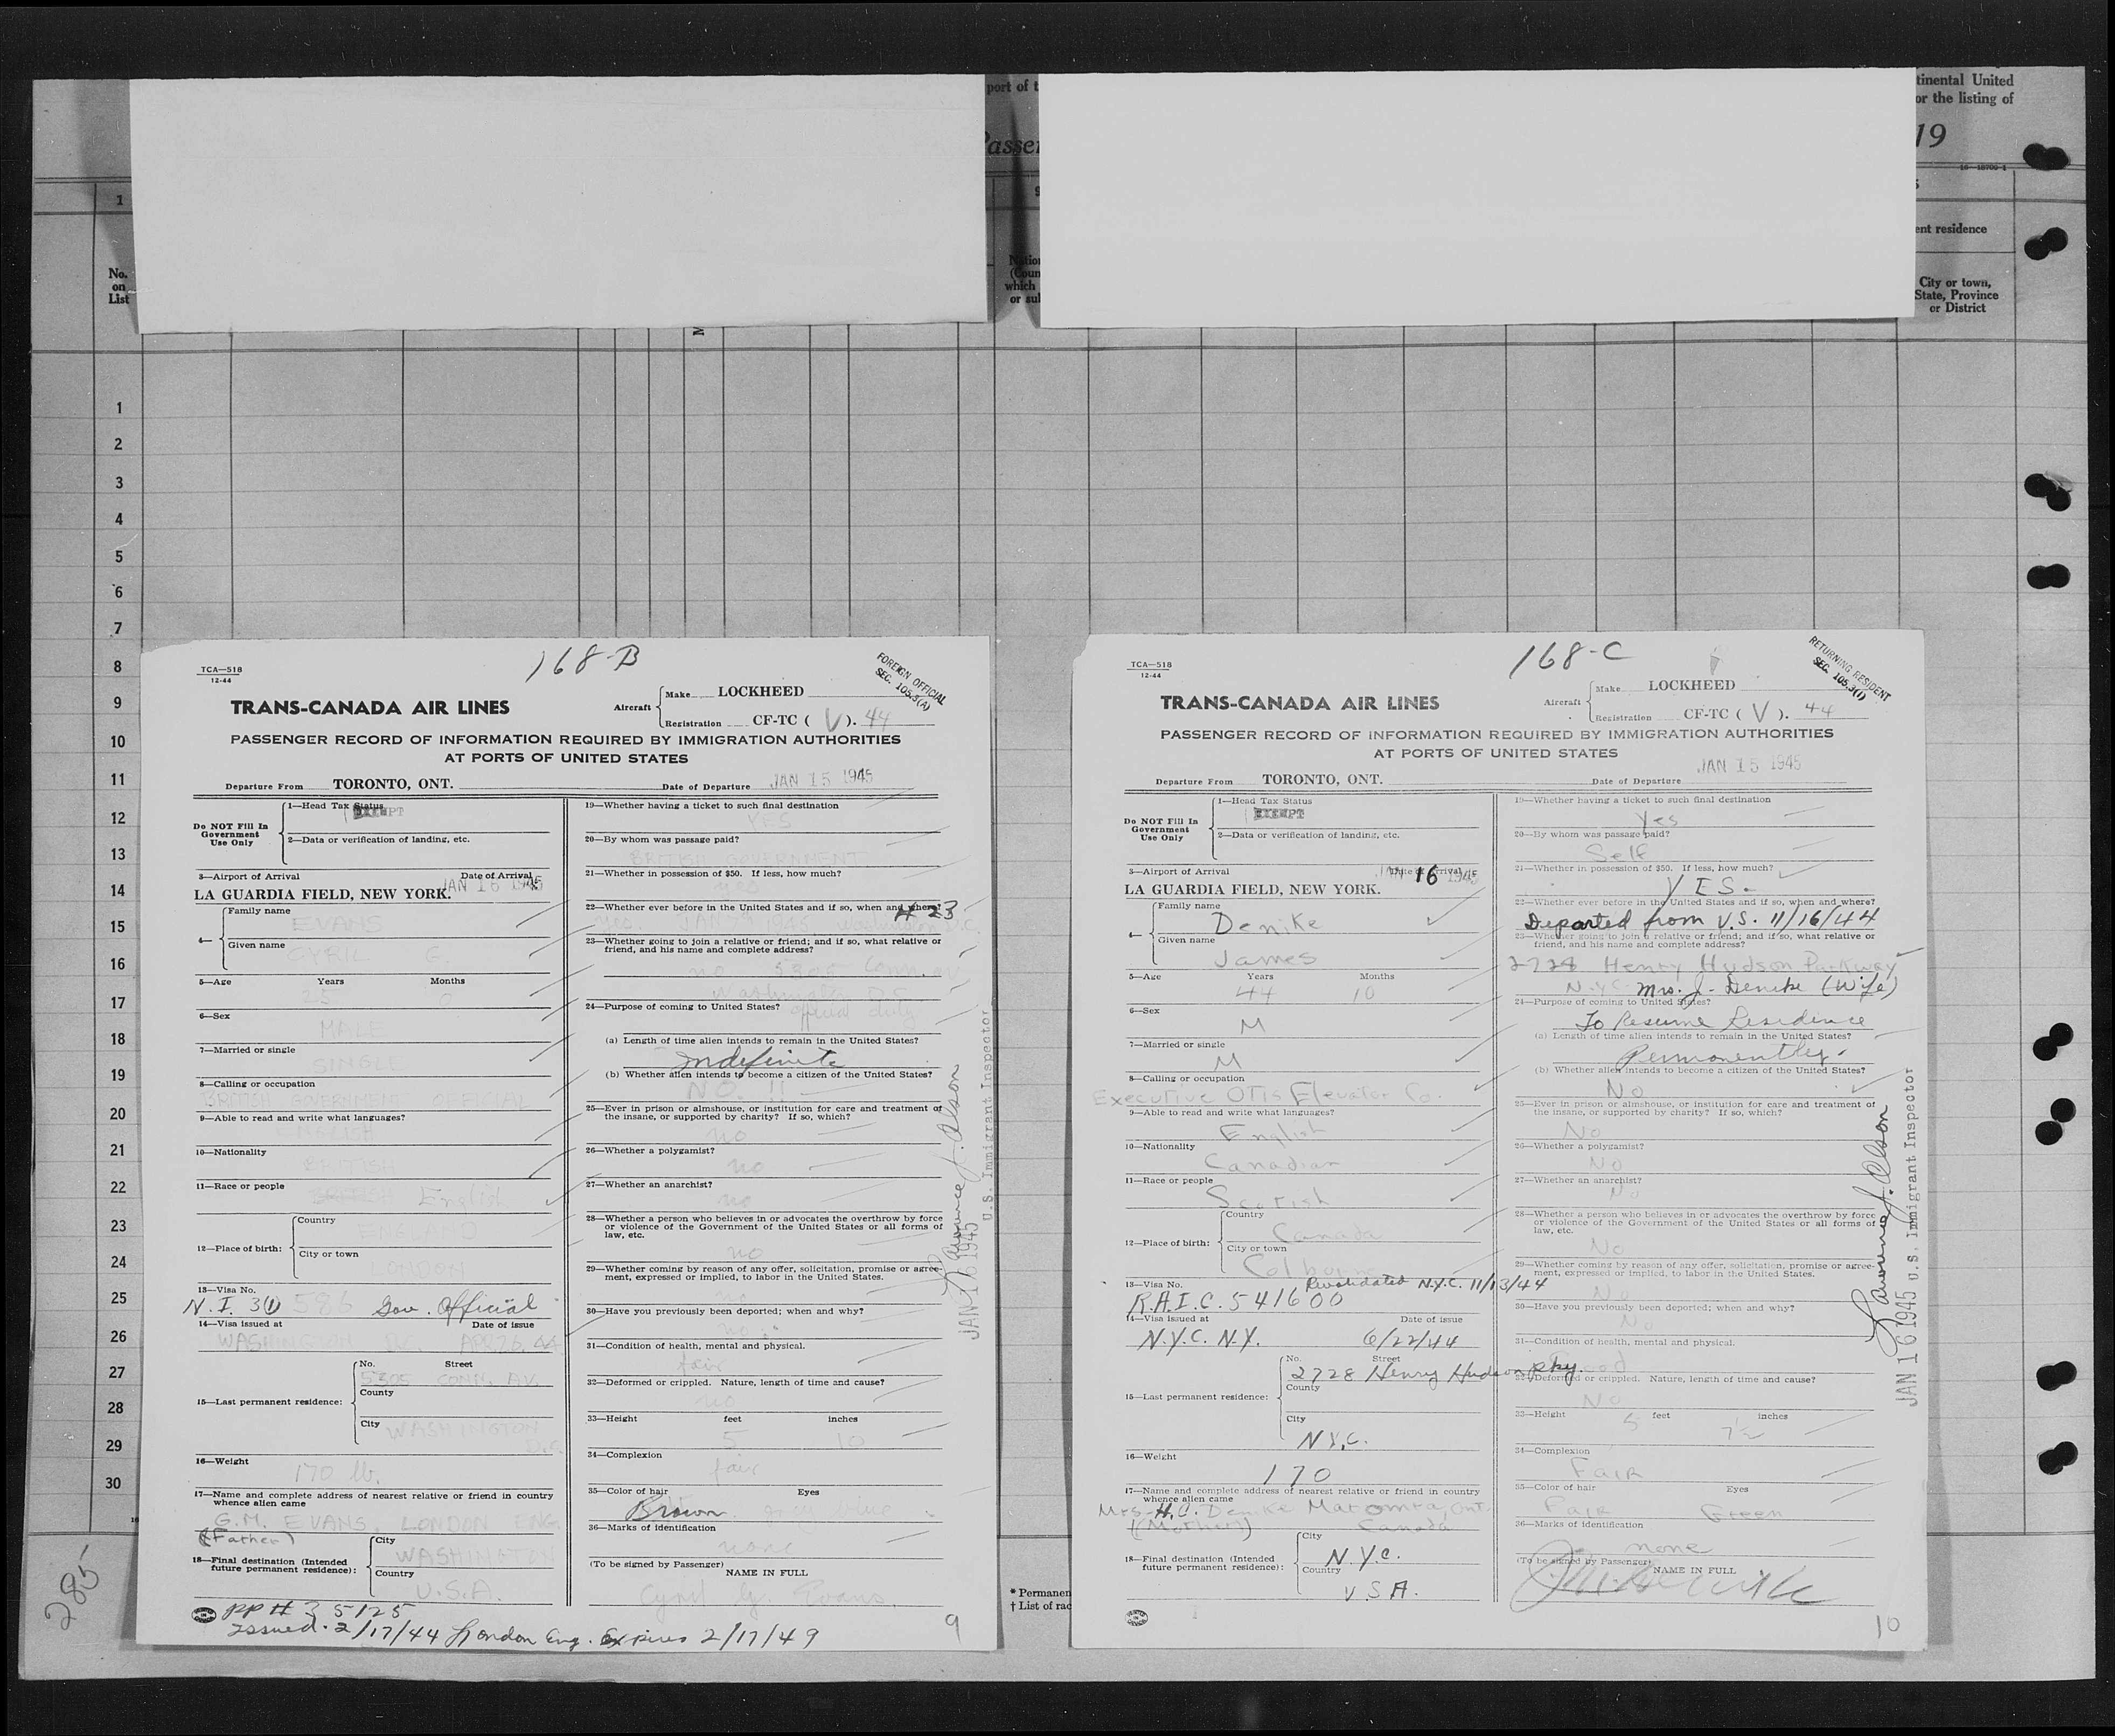 port of t
tinental United
or the listing of
Passe
19
16—18700-1
1
9
ent residence
No.
on
List
which
or su
City or town,
State, Province
or District
1
2
3
4
5
6
7
8
9
10
11
12
13
14
15
16
17
18
19
20
21
22
23
24
25
26
27
28
29
30
285
* Permanen
† List of rac
168-B
TCA—518
12-44
FOREIGN OFFICIAL
SEC. 105.3(A)
TRANS-CANADA AIR LINES
Aircraft
Make LOCKHEED
Registration CF-TC ( V ). 44
PASSENGER RECORD OF INFORMATION REQUIRED BY IMMIGRATION AUTHORITIES
AT PORTS OF UNITED STATES
Departure From TORONTO, ONT.
Date of Departure JAN 15 1945
Do NOT Fill In
Government
Use Only
1—Head Tax Status
EXEMPT
2—Data or verification of landing, etc.
3—Airport of Arrival
Date of Arrival
LA GUARDIA FIELD, NEW YORK. JAN 16 1945
4—
Family name
EVANS
Given name
CYRIL G.
5—Age Years Months
6—Sex
MALE
7—Married or single
SINGLE
8—Calling or occupation
BRITISH GOVERNMENT OFFICIAL
9—Able to read and write what languages?
ENGLISH
10—Nationality
BRITISH
11—Race or people
English
12—Place of birth:
Country
ENGLAND
City or town
LONDON
13—Visa No.
N.I. 3(1) 586 Gov. Official
14—Visa issued at Date of issue
WASHINGTON D.C. APR 26, 44
15—Last permanent residence:
No. Street
5305 CONN. AV.
County
City
WASHINGTON
D.C.
16—Weight
170 lb.
17—Name and complete address of nearest relative or friend in country
whence alien came
G.M. EVANS, LONDON ENG.
(Father)
18—Final destination (Intended
future permanent residence):
City
WASHINGTON
Country
U.S.A.
PP # 35125
Issued. 2/17/44 London Eng. Expires 2/17/49
19—Whether having a ticket to such final destination
YES
20—By whom was passage paid?
BRITISH GOVERNMENT
21—Whether in possession of $50. If less, how much?
yes
22—Whether ever before in the United States and if so, when and where?
# 23
23—Whether going to join a relative or friend; and if so, what relative or
friend, and his name and complete address?
no 5305 Conn. Av
Washington D.C.
24—Purpose of coming to United States? official duty
(a) Length of time alien intends to remain in the United States?
Indefinite
(b) Whether alien intends to become a citizen of the United States?
NO.!!
25—Ever in prison or almshouse, or institution for care and treatment of
the insane, or supported by charity? If so, which?
no
26—Whether a polygamist?
no
27—Whether an anarchist?
no
28—Whether a person who believes in or advocates the overthrow by force
or violence of the Government of the United States or all forms of
law, etc.
no
29—Whether coming by reason of any offer, solicitation, promise or agree-
ment, expressed or implied, to labor in the United States.
no
30—Have you previously been deported; when and why?
no
31—Condition of health, mental and physical.
fair
32—Deformed or crippled. Nature, length of time and cause?
no
33—Height feet inches
5 10
34—Complexion
fair
35—Color of hair Eyes
Brown
36—Marks of identification
none
(To be signed by Passenger)
NAME IN FULL
Cyril G. Evans.
9
Lawrence J. Olson
U.S. Immigrant Inspector
JAN 16 1945
168-C
TCA—518
12-44
RETURNING RESIDENT
SEC. 105.3(1)
TRANS-CANADA AIR LINES
Aircraft
Make LOCKHEED
Registration CF-TC ( V ). 44
PASSENGER RECORD OF INFORMATION REQUIRED BY IMMIGRATION AUTHORITIES
AT PORTS OF UNITED STATES
JAN 15 1945
Departure From TORONTO, ONT.
Date of Departure
Do NOT Fill In
Government
Use Only
1—Head Tax Status
EXEMPT
2—Data or verification of landing, etc.
3—Airport of Arrival
Date of Arrival
JAN 16 1945
LA GUARDIA FIELD, NEW YORK.
4—
Family name
Denike
Given name
James
5—Age Years Months
44 10
6—Sex
M
7—Married or single
M
8—Calling or occupation
Executive Otis Elevator Co.
9—Able to read and write what languages?
English
10—Nationality
Canadian
11—Race or people
Scotish
12—Place of birth:
Country
Canada
City or town
Colborne
13—Visa No. Revalidated N.Y.C. 11/13/44
R.A.I.C. 541600
14—Visa issued at Date of issue
N.Y.C. N.Y. 6/22/44
15—Last permanent residence:
No. Street
2728 Henry Hudson pky.
County
City
N.Y.C.
16—Weight
170
17—Name and complete address of nearest relative or friend in country
whence alien came
Mrs. H.C. Denike Ont.
(Mother) Canada
18—Final destination (Intended
future permanent residence):
City
N.Y.C.
Country
U.S.A.
19—Whether having a ticket to such final destination
Yes
20—By whom was passage paid?
Self
21—Whether in possession of $50. If less, how much?
YES-
22—Whether ever before in the United States and if so, when and where?
Departed from U.S. 11/16/44
23—Whether going to join a relative or friend; and if so, what relative or
friend, and his name and complete address?
2728 Henry Hudson Parkway
N.Y.C. Mrs. J. Denike (Wife)
24—Purpose of coming to United States?
To Resume Residence
(a) Length of time alien intends to remain in the United States?
Permanently.
(b) Whether alien intends to become a citizen of the United States?
No
25—Ever in prison or almshouse, or institution for care and treatment of
the insane, or supported by charity? If so, which?
No
26—Whether a polygamist?
No
27—Whether an anarchist?
No
28—Whether a person who believes in or advocates the overthrow by force
or violence of the Government of the United States or all forms of
law, etc.
No
29—Whether coming by reason of any offer, solicitation, promise or agree-
ment, expressed or implied, to labor in the United States.
No
30—Have you previously been deported; when and why?
No
31—Condition of health, mental and physical.
Good
32—Deformed or crippled. Nature, length of time and cause?
No
33—Height feet inches
5 7½
34—Complexion
Fair
35—Color of hair Eyes
Fair Green
36—Marks of identification
none
(To be signed by Passenger)
NAME IN FULL
10
Lawrence J. Olson
JAN 16 1945 U.S. Immigrant Inspector